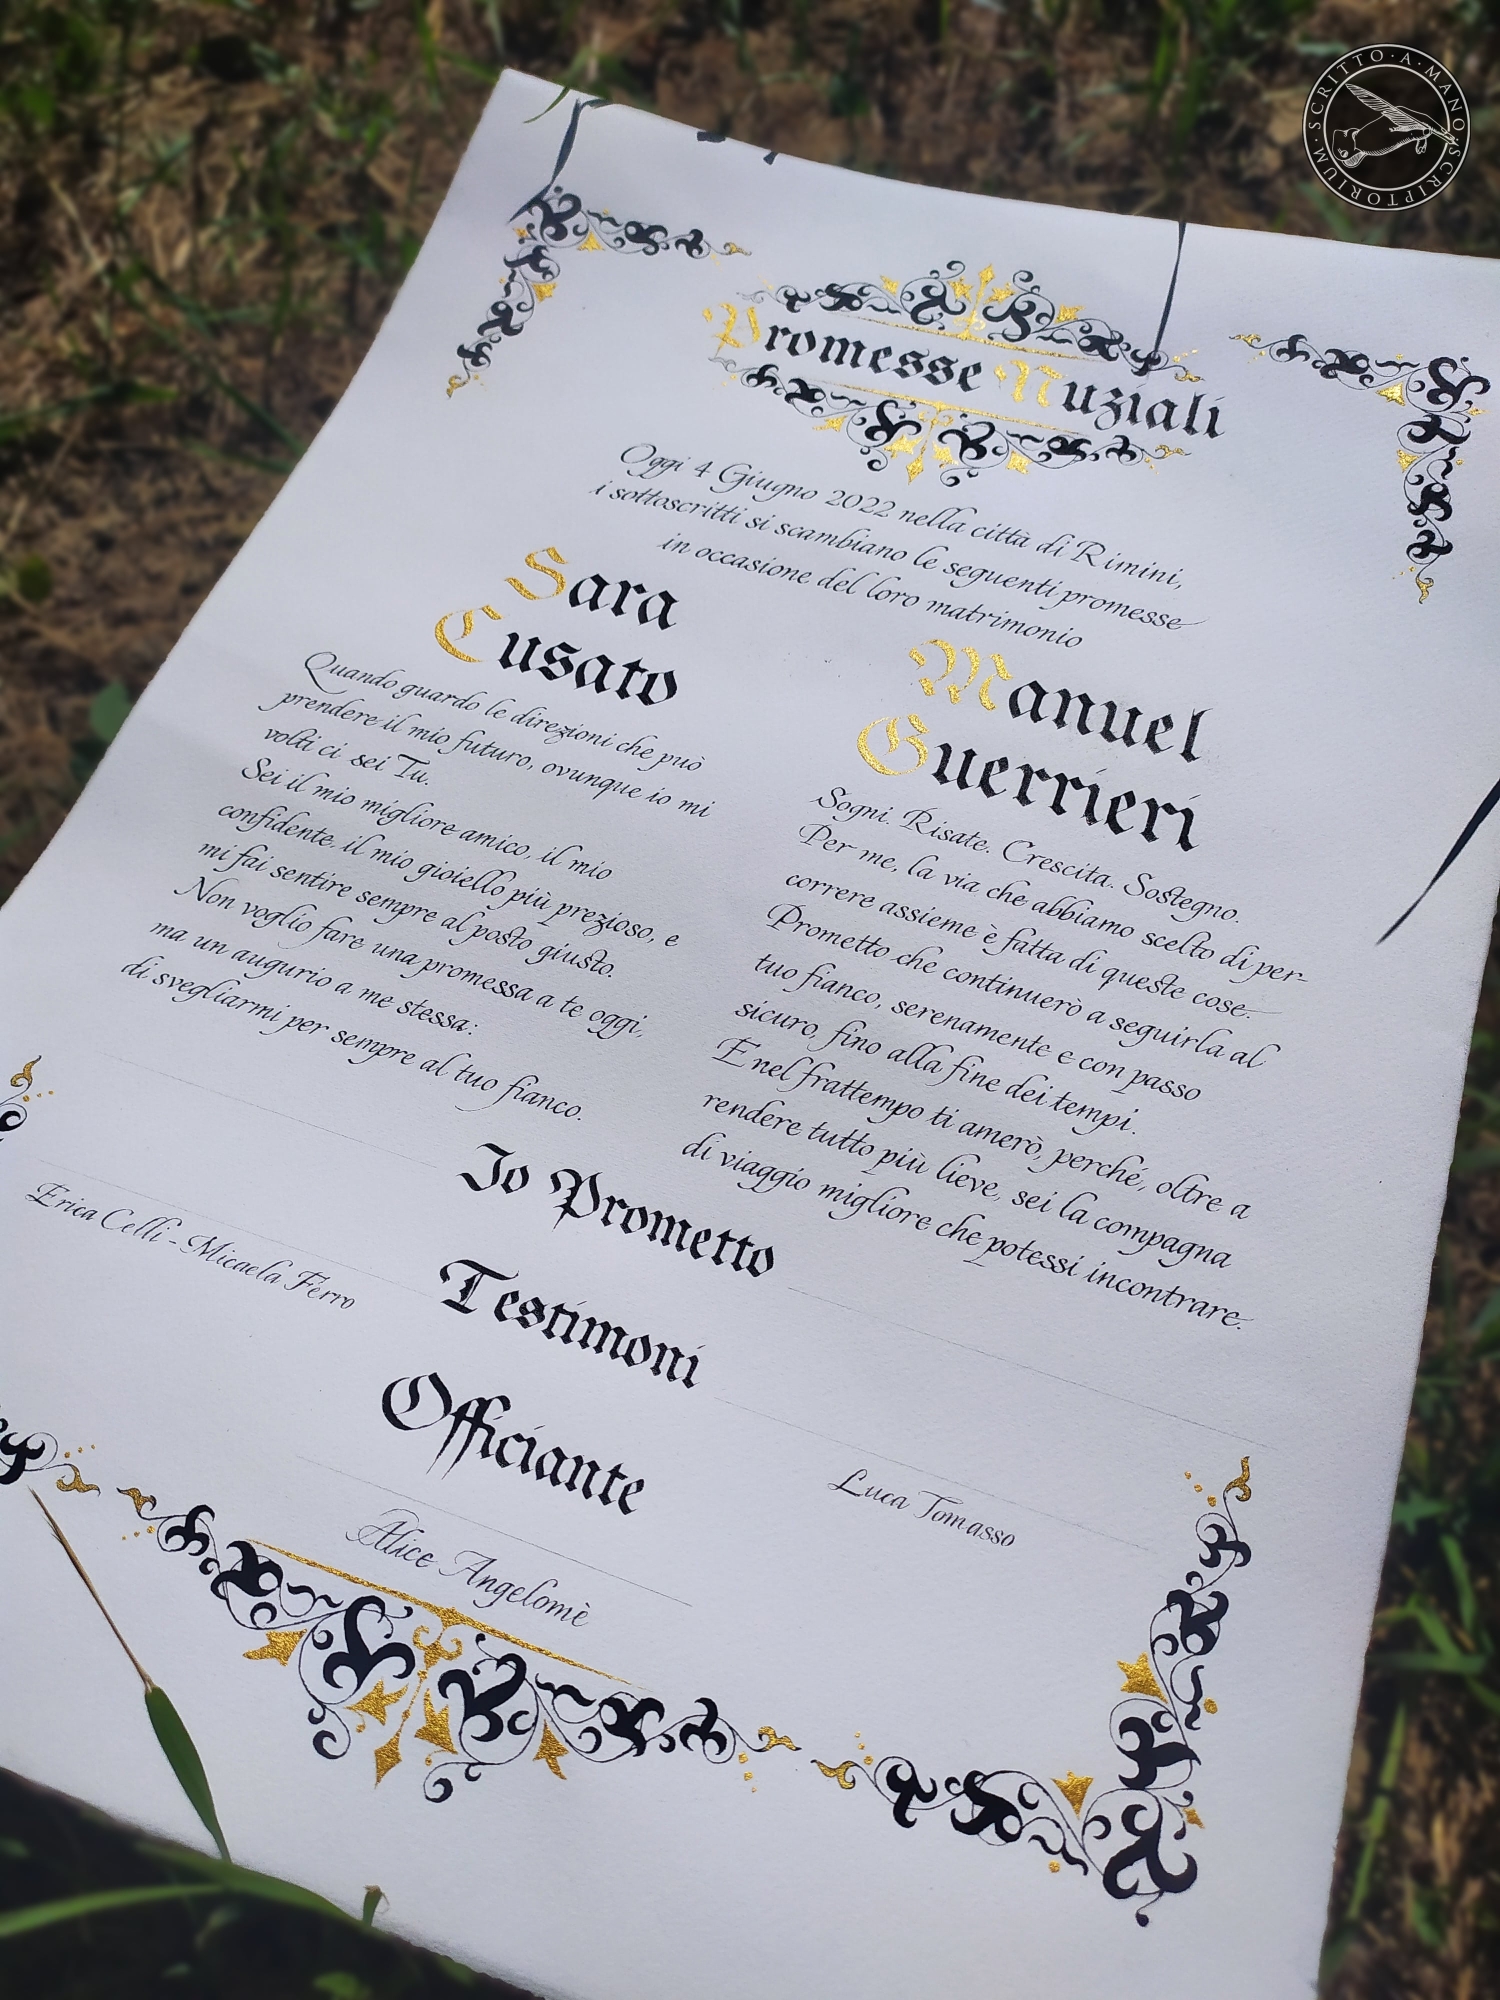 SCRITTO · A · MANO · SCRIPTORIUM ·
Promesse Nuziali
Oggi 4 Giugno 2022 nella città di Rimini,
i sottoscritti si scambiano le seguenti promesse
in occasione del loro matrimonio
Sara
Cusato
Quando guardo le direzioni che può
prendere il mio futuro, ovunque io mi
volti ci sei Tu.
Sei il mio migliore amico, il mio
confidente, il mio gioiello più prezioso, e
mi fai sentire sempre al posto giusto.
Non voglio fare una promessa a te oggi,
ma un augurio a me stessa:
di svegliarmi per sempre al tuo fianco.
Manuel
Guerrieri
Sogni. Risate. Crescita. Sostegno.
Per me, la via che abbiamo scelto di per-
correre assieme è fatta di queste cose.
Prometto che continuerò a seguirla al
tuo fianco, serenamente e con passo
sicuro, fino alla fine dei tempi.
E nel frattempo ti amerò, perché, oltre a
rendere tutto più lieve, sei la compagna
di viaggio migliore che potessi incontrare.
Io Prometto
Testimoni
Erica Celli - Micaela Ferro
Luca Tomasso
Officiante
Alice Angelomè